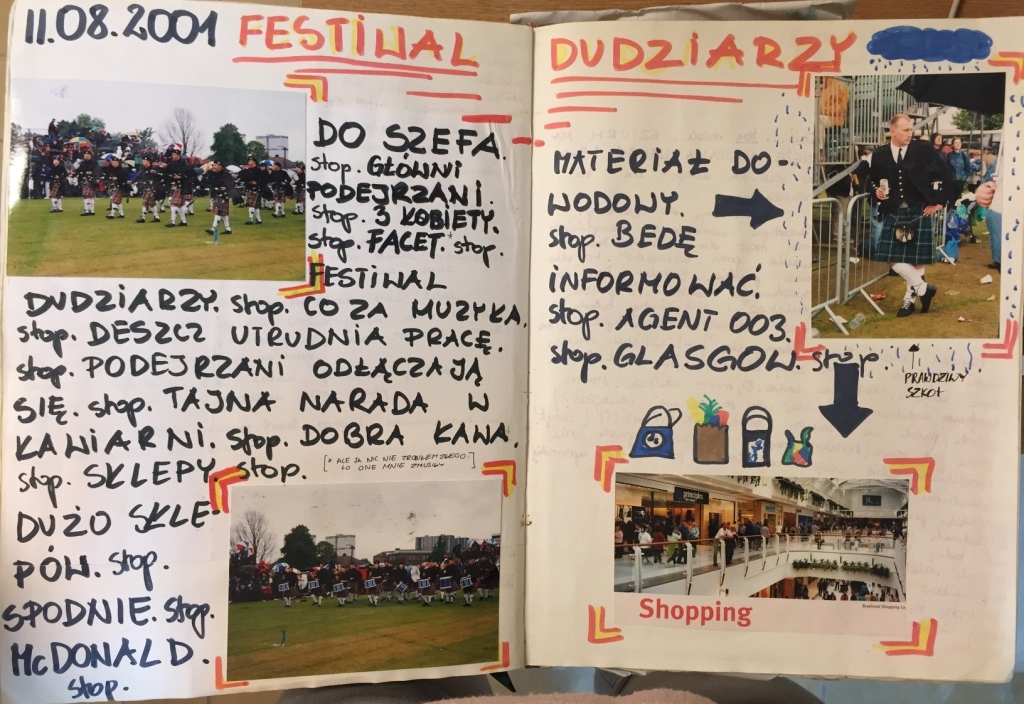 11.08.2001 FESTIWAL
DO SZEFA.
stop. GŁÓWNI
PODEJRZANI.
stop. 3 KOBIETY.
stop. FACET.* stop.
FESTIWAL
DUDZIARZY. stop. CO ZA MUZYKA.
stop. DESZCZ UTRUDNIA PRACĘ.
stop. PODEJRZANI ODŁĄCZAJĄ
SIĘ. stop. TAJNA NARADA W
KAWIARNI. stop. DOBRA KAWA.
stop. SKLEPY. stop.
[* ALE JA NIC NIE ZROBIŁEM ZŁEGO.
TO ONE MNIE ZMUSIŁY]
DUŻO SKLE-
PÓW. stop.
SPODNIE. stop.
McDONALD.
stop.
DUDZIARZY
MATERIAŁ DO-
WODOWY.
stop. BEDĘ
INFORMOWAĆ.
stop. AGENT 003.
stop. GLASGOW. stop
PRAWDZIWY
SZKOT
principles
Shopping
Braehead Shopping Ce